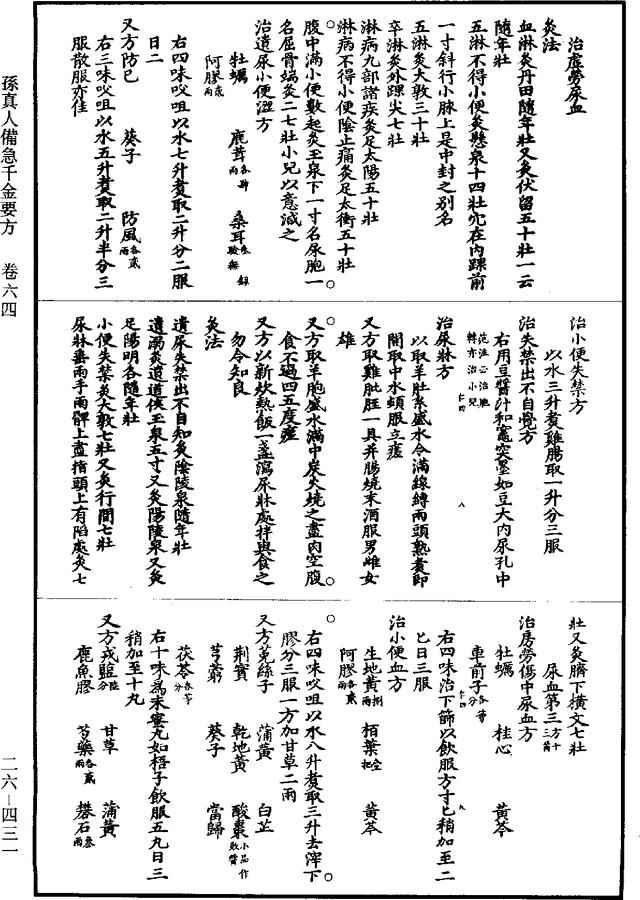 孫真人備急千金要方　卷六四
二六—四三一
治虛勞尿血
灸法
血淋灸丹田隨年壯又灸伏留五十壯一云
隨年壯
五淋不得小便灸懸泉十四壯穴在內踝前
一寸斜行小脉上是中封之别名
五淋灸大敦三十壯
卒淋灸外踝尖七壯
淋病九部諸疾灸足太陽五十壯
淋病不得小便陰止痛灸足太衝五十壯
腹中滿小便數起灸玉泉下一寸名尿胞一
名屈骨端灸二七壯小兒以意減之
治遺尿小便澀方
牡蠣　鹿茸各肆兩　桑耳叁兩
阿膠貳兩
右四味㕮咀以水七升煑取二升分二服
日二
又方防已　葵子　防風各貳兩
右三味㕮咀以水五升煑取二升半分三
服散服亦佳
治小便失禁方
以水三升煑雞腸取一升分三服
治失禁出不自覺方
右用豆醬汁和竈突墨如豆大內尿孔中
范汪云治胞轉亦治小兒
治尿牀方
以取羊肚系盛水令滿線縛兩頭熟煑即
開取中水頓服立瘥
又方取雞肶胵一具并腸燒末酒服男雌女
雄
又方取羊胞盛水滿中炭火燒之盡肉空腹
食不過四五度瘥
又方以新炊熱飯一盞瀉尿牀處拌與食之
勿令知良
灸法
遺尿失禁出不自知灸陰陵泉隨年壯
遺溺灸遺道俠玉泉五寸又灸陽陵泉又灸
足陽明各隨年壯
小便失禁灸大敦七壯又灸行間七壯
尿牀垂兩手兩髀上盡指頭上有陷處灸七
壯又灸臍下橫文七壯
尿血第三方十三首
治房勞傷中尿血方
牡蠣　桂心　黃芩
車前子各等分
右四味治下篩以飲服方寸匕稍加至二
匕日三服
治小便血方
生地黃捌兩　栢葉壹把　黃芩
阿膠各貳兩
右四味㕮咀以水八升煑取三升去滓下
膠分三服一方加甘草二兩
又方菟絲子　蒲黃　白芷
荆實　乾地黃　酸棗小品作敗醬
芎藭　葵子　當歸
茯苓各等分
右十味爲末蜜丸如梧子飲服五丸日三
稍加至十丸
又方戎鹽陸分　甘草　蒲黃
鹿角膠　芍藥各貳兩　礬石叁兩